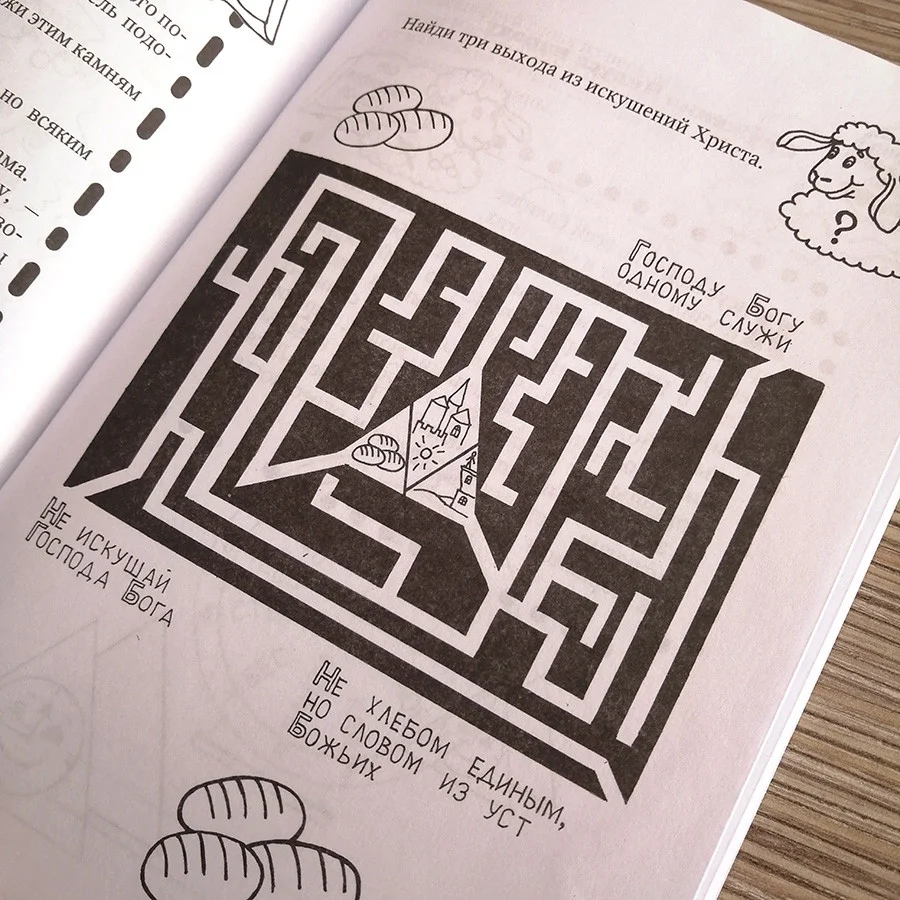 ого по-
ель подо-
жи этим камням
но всяким
ама.
у, –
во-
Найди три выхода из искушений Христа.
?
Господу Богу
одному служи
Не искушай
Господа Бога
Не хлебом единым,
но словом из уст
Божьих